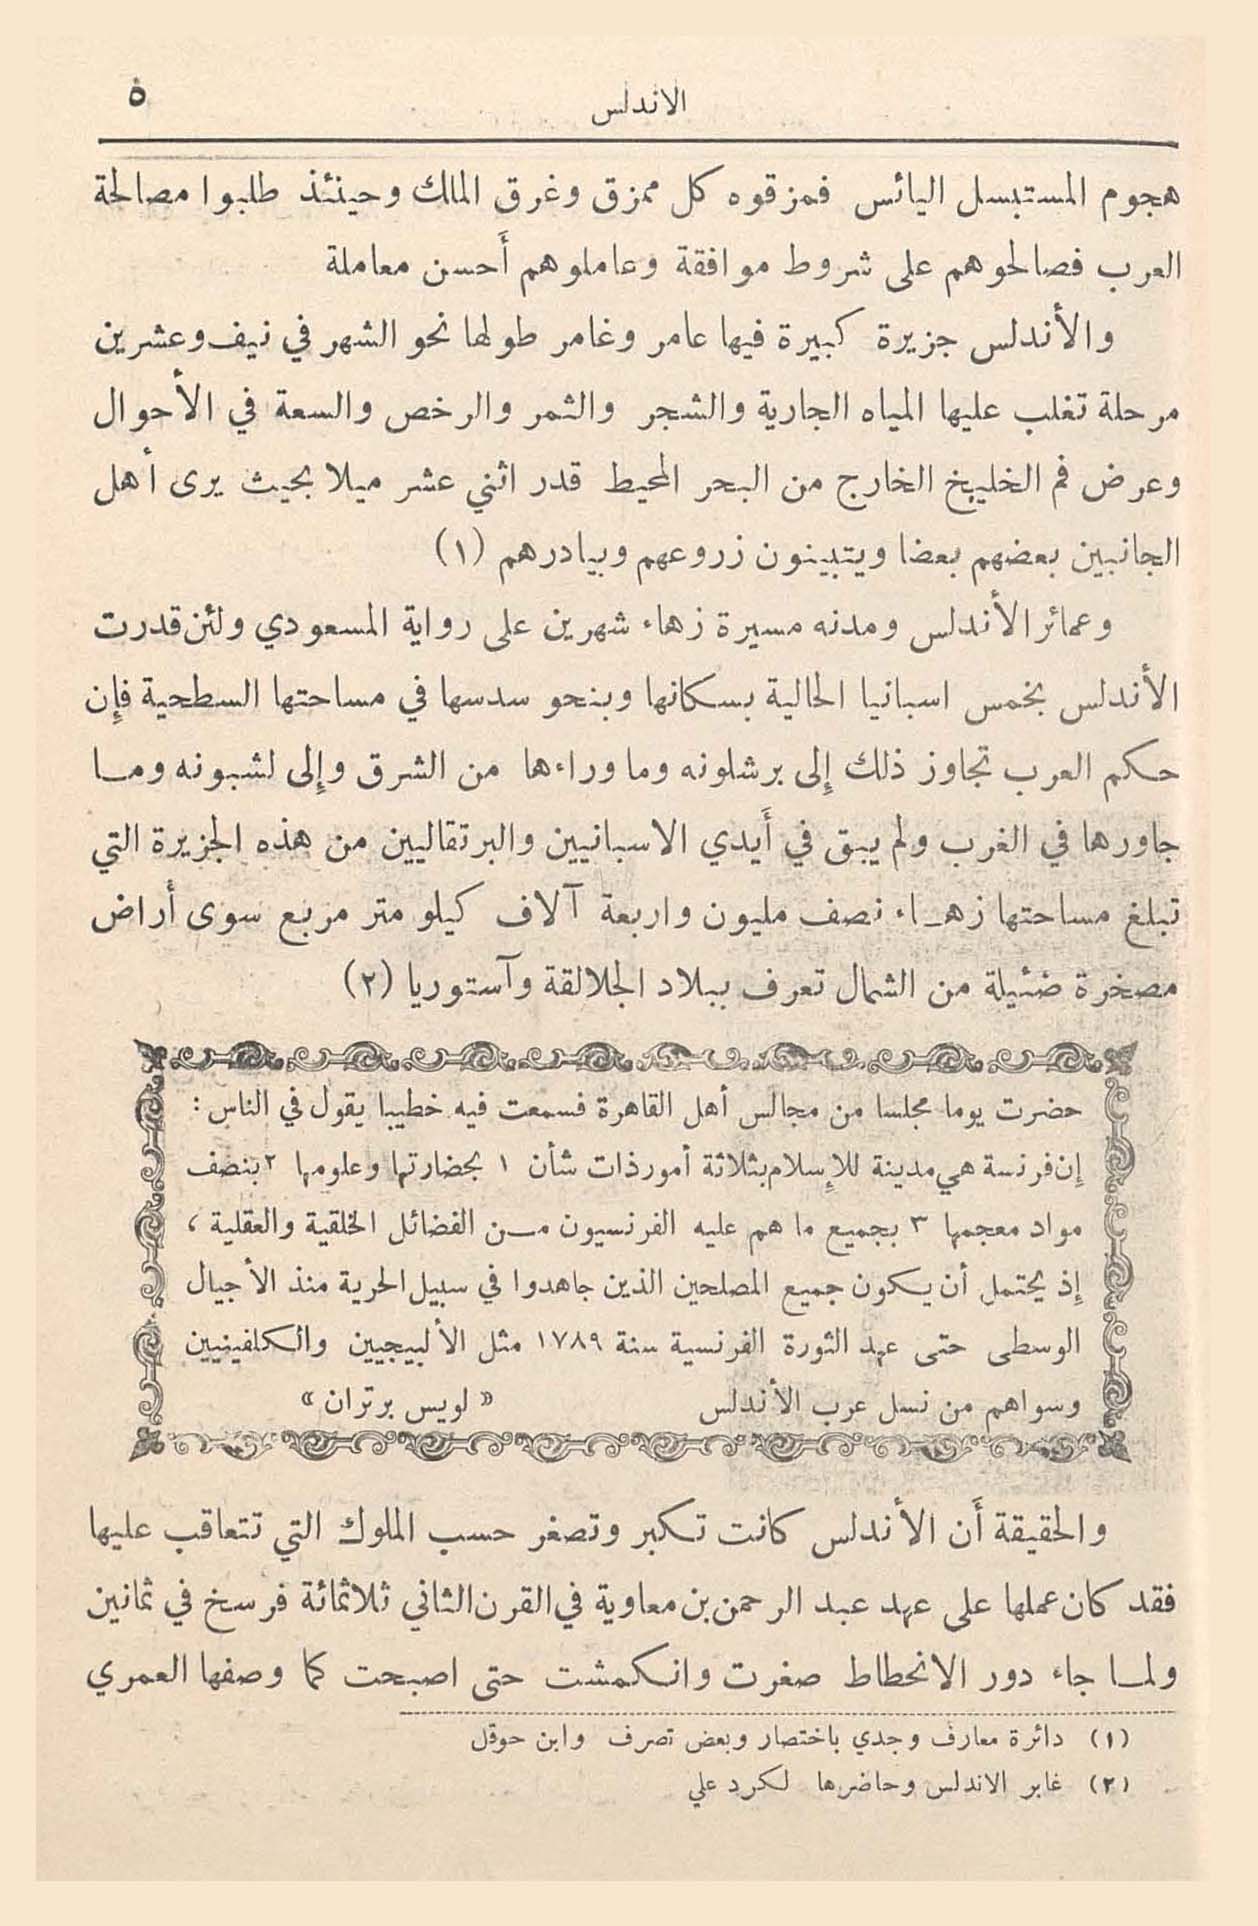 الاندلس
٥
هجوم المستبسل اليائس فمزقوه كل ممزق وغرق الملك وحينئذ طلبوا مصالحة
العرب فصالحوهم على شروط موافقة وعاملوهم أَحسن معاملة
والأندلس جزيرة كبيرة فيها عامر وغامر طولها نحو الشهر في نيف وعشرين
مرحلة تغلب عليها المياه الجارية والشجر والثمر والرخص والسعة في الأحوال
وعرض فم الخليج الخارج من البحر المحيط قدر اثني عشر ميلا بحيث يرى أهل
الجانبين بعضهم بعضا ويتبينون زروعهم وبيادرهم (١)
وعمائر الأندلس ومدنه مسيرة زهاء شهرين على رواية المسعودي ولئن قدرت
الأندلس بخمس اسبانيا الحالية بسكانها وبنحو سدسها في مساحتها السطحية فإن
حكم العرب تجاوز ذلك إلى برشلونه وما وراءها من الشرق وإلى لشبونه وما
جاورها في الغرب ولم يبق في أَيدي الاسبانيين والبرتقاليين من هذه الجزيرة التي
تبلغ مساحتها زهاء نصف مليون واربعة آلاف كيلو متر مربع سوى أراض
مصخرة ضئيلة من الشمال تعرف ببلاد الجلالقة وآستوريا (٢)
حضرت يوما مجلسا من مجالس أهل القاهرة فسمعت فيه خطيبا يقول في الناس :
إن فرنسة هي مدينة للإسلام بثلاثة أمور ذات شأن ١ بحضارتها وعلومها ٢ بنصف
مواد معجمها ٣ بجميع ما هم عليه الفرنسيون من الفضائل الخلقية والعقلية ،
إذ يحتمل أن يكون جميع المصلحين الذين جاهدوا في سبيل الحرية منذ الأجيال
الوسطى حتى عهد الثورة الفرنسية سنة ١٧٨٩ مثل الألبيجيين والكلفينيين
وسواهم من نسل عرب الأندلس « لويس برتران »
والحقيقة أَن الأندلس كانت تكبر وتصغر حسب الملوك التي تتعاقب عليها
فقد كان عملها على عهد عبد الرحمن بن معاوية في القرن الثاني ثلاثمائة فرسخ في ثمانين
ولما جاء دور الانحطاط صغرت وانكمشت حتى اصبحت كما وصفها العمري
(١) دائرة معارف وجدي باختصار وبعض تصرف وابن حوقل
(٢) غابر الاندلس وحاضرها لكرد علي